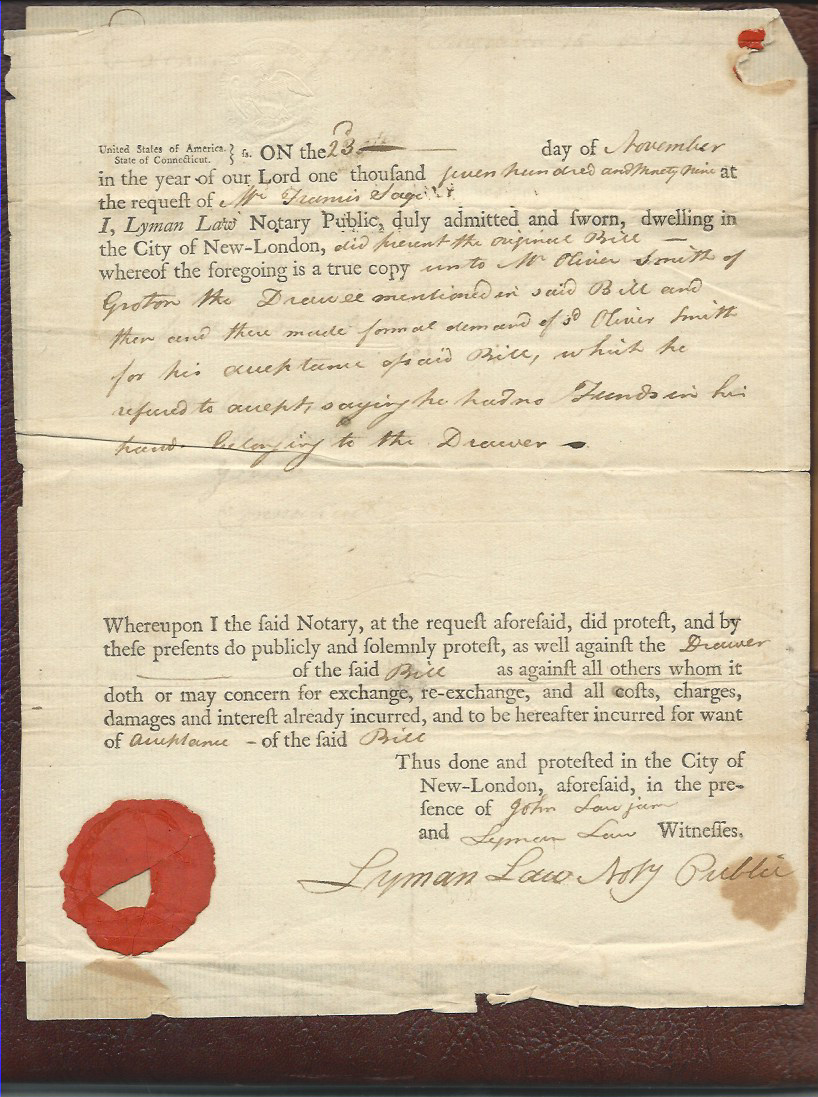 United States of America. } ss. ON the 23 day of November
State of Connecticut.
in the year of our Lord one thouſand ſeven hundred and Ninety Nine at
the request of Mr Francis Sage
I, Lyman Law Notary Public, duly admitted and ſworn, dwelling in
the City of New-London, did present the original Bill —
whereof the foregoing is a true copy unto Mr Oliver Smith of
Groton the Drawee mentioned in said Bill and
then and there made formal demand of sd Oliver Smith
for his acceptance of said Bill, which he
refused to accept, saying he had no Funds in his
hands belonging to the Drawer —
Whereupon I the ſaid Notary, at the requeſt aforeſaid, did proteſt, and by
theſe preſents do publicly and ſolemnly proteſt, as well againſt the Drawer
of the ſaid Bill as againſt all others whom it
doth or may concern for exchange, re-exchange, and all coſts, charges,
damages and intereſt already incurred, and to be hereafter incurred for want
of acceptance – of the ſaid Bill
Thus done and proteſted in the City of
New-London, aforeſaid, in the pre-
ſence of John Law jun
and Lyman Law Witneſſes.
Lyman Law Noty Public